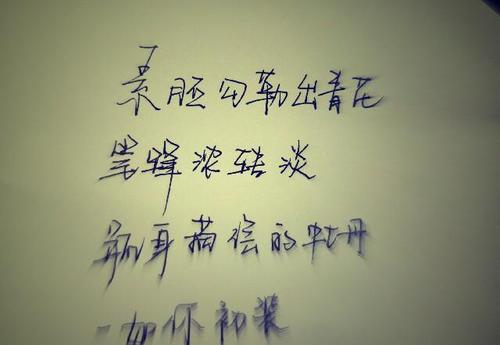 素胚勾勒出青花
笔锋浓转淡
瓶身描绘的牡丹
一如你初装